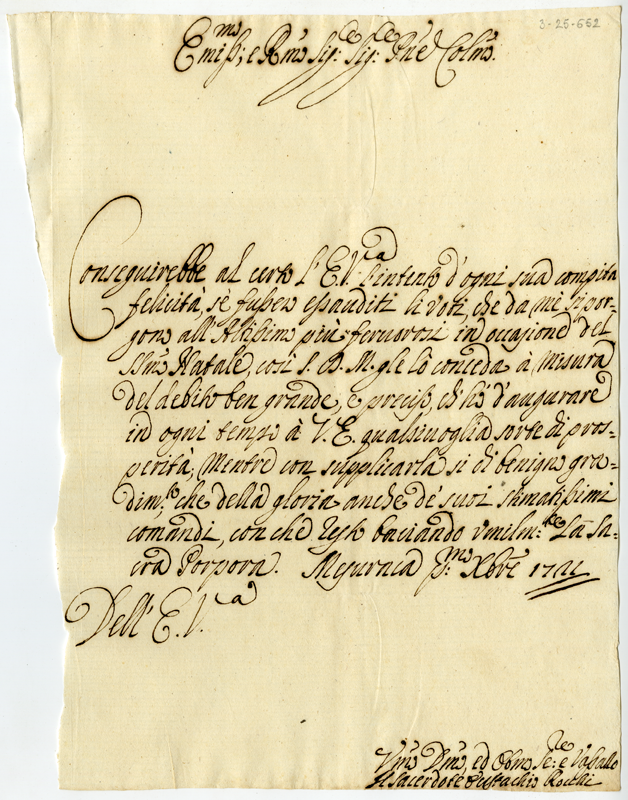 3-25-662
Emiss:mo e Rmo Sig:e Sig:e Pne Colmo.
Conseguirebbe al certo l'E.V.a l'intento d'ogni sua compita
felicità, se fussero essauditi li voti, che da me si por-
gono all'Altissimo più fervorosi in occasione del
SSmo Natale, così S. D. M. gle lo conceda à misura
del debito ben grande, e preciso, ch'hò d'augurare
in ogni tempo à V.E. qualsivoglia sorte di pros-
perità; Mentre con supplicarla si di benigno gra-
dim.to che della gloria anche de' suoi stimatissimi
comandi, con che resto baciando umilm:te La Sa-
cra Porpora. p:mo Xbre
Dell' E.V.a
Vmo Dmo, ed Obmo Se:re e Vassallo
Il Sacerdote Eustachio